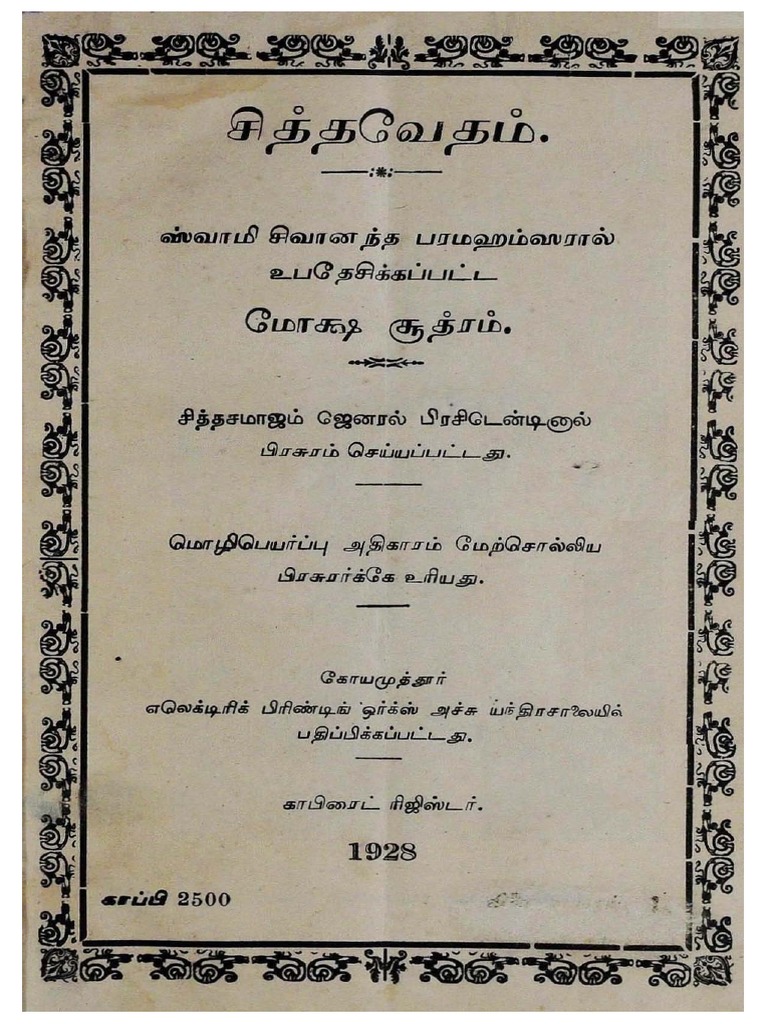 சித்தவேதம்.
ஸ்வாமி சிவானந்த பரமஹம்ஸரால்
உபதேசிக்கப்பட்ட
மோக்ஷ சூத்ரம்.
சித்தசமாஜம் ஜெனரல் பிரசிடென்டினால்
பிரசுரம் செய்யப்பட்டது.
மொழிபெயர்ப்பு அதிகாரம் மேற்சொல்லிய
பிரசுரர்க்கே உரியது.
கோயமுத்தூர்
எலெக்டிரிக் பிரிண்டிங் ஒர்க்ஸ் அச்சு யந்திரசாலையில்
பதிப்பிக்கப்பட்டது.
காபிரைட் ரிஜிஸ்டர்.
1928
காப்பி 2500